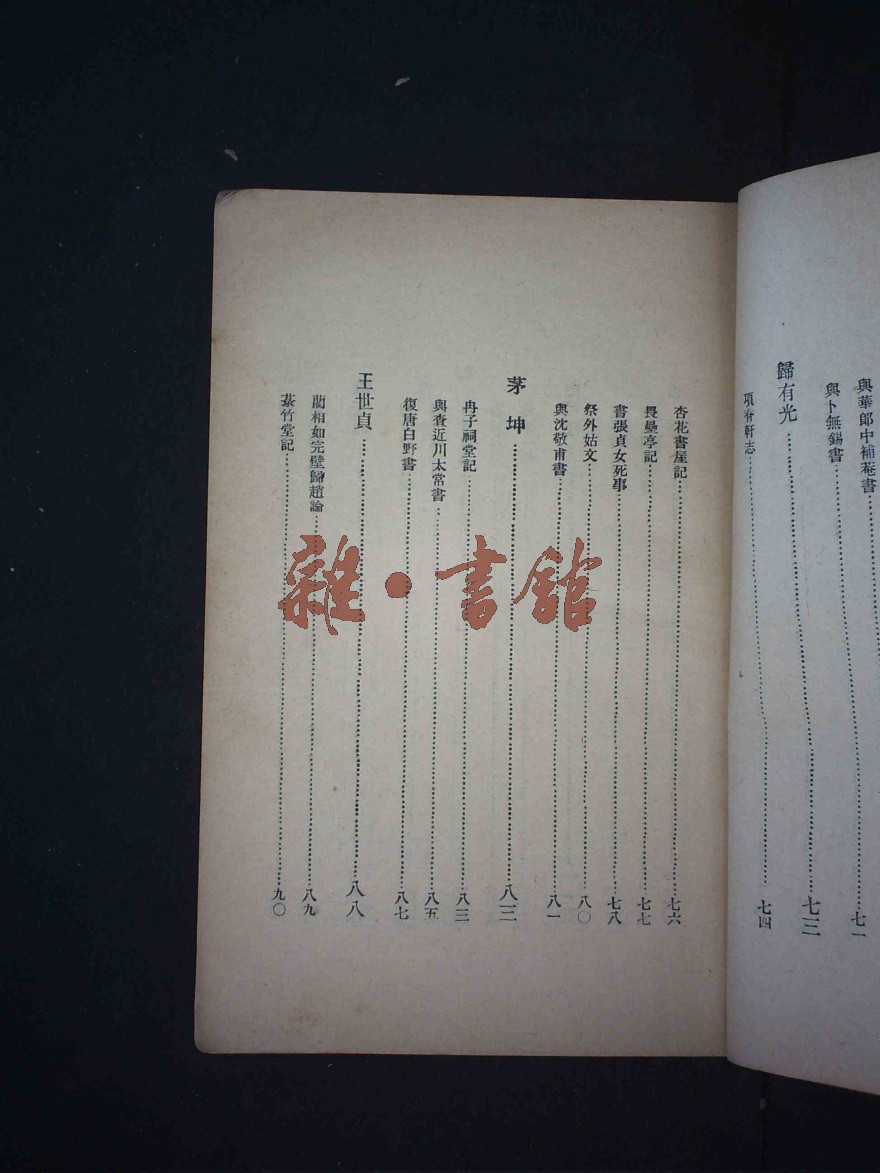 與華郎中補菴書……七一
與卜無錫書
歸有光……七三
項脊軒志……七四
杏花書屋記……七六
畏壘亭記……七七
書張貞女死事……七八
祭外姑文……八〇
與沈敬甫書……八一
茅坤……八三
冉子祠堂記……八三
與查近川太常書……八五
復唐白野書……八七
王世貞……八八
藺相如完璧歸趙論……八九
棻竹堂記……九〇
雜·書館